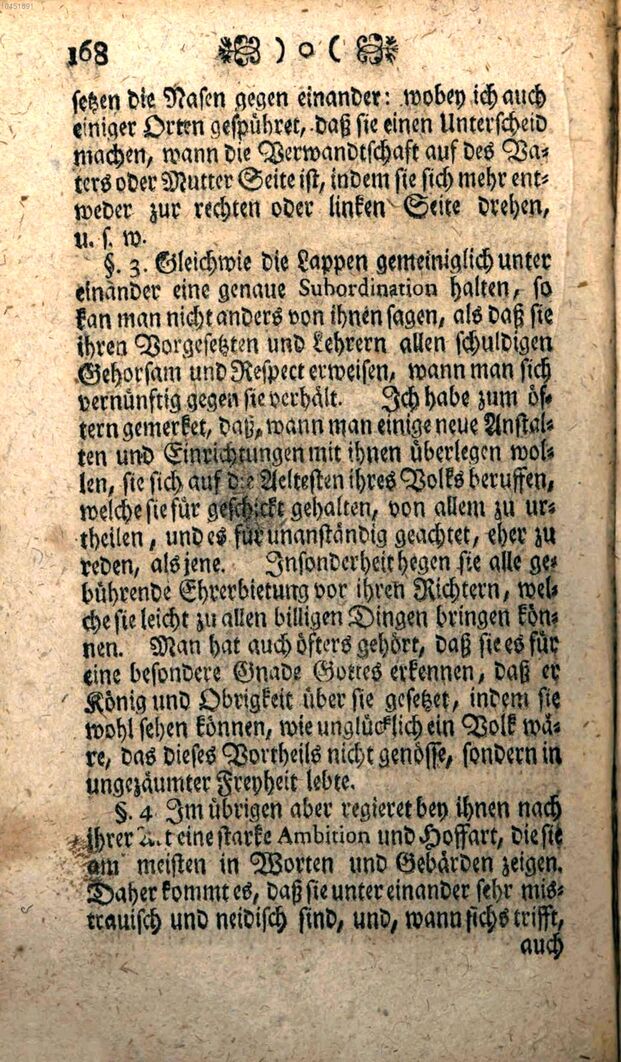 10451891
168 ) o (
setzen die Nasen gegen einander: wobey ich auch
einiger Orten gespühret, daß sie einen Unterscheid
machen, wann die Verwandtschaft auf des Va-
ters oder Mutter Seite ist, indem sie sich mehr ent-
weder zur rechten oder linken Seite drehen,
u. s. w.
§. 3. Gleichwie die Lappen gemeiniglich unter
einander eine genaue Subordination halten, so
kan man nicht anders von ihnen sagen, als daß sie
ihren Vorgesetzten und Lehrern allen schuldigen
Gehorsam und Respect erweisen, wann man sich
vernünftig gegen sie verhält. Ich habe zum öf-
tern gemerket, daß, wann man einige neue Anstal-
ten und Einrichtungen mit ihnen überlegen wol-
len, sie sich auf die Aeltesten ihres Volks beruffen,
welche sie für geschickt gehalten, von allem zu ur-
theilen, und es für unanständig geachtet, eher zu
reden, als jene. Insonderheit hegen sie alle ge-
bührende Ehrerbietung vor ihren Richtern, wel-
che sie leicht zu allen billigen Dingen bringen kön-
nen. Man hat auch öfters gehört, daß sie es für
eine besondere Gnade Gottes erkennen, daß er
König und Obrigkeit über sie gesetzet, indem sie
wohl sehen können, wie unglücklich ein Volk wä-
re, das dieses Vortheils nicht genösse, sondern in
ungezäumter Freyheit lebte.
§. 4 Im übrigen aber regieret bey ihnen nach
ihrer Art eine starke Ambition und Hoffart, die sie
am meisten in Worten und Gebärden zeigen.
Daher kommt es, daß sie unter einander sehr mis-
trauisch und neidisch sind, und, wann sichs trifft,
auch